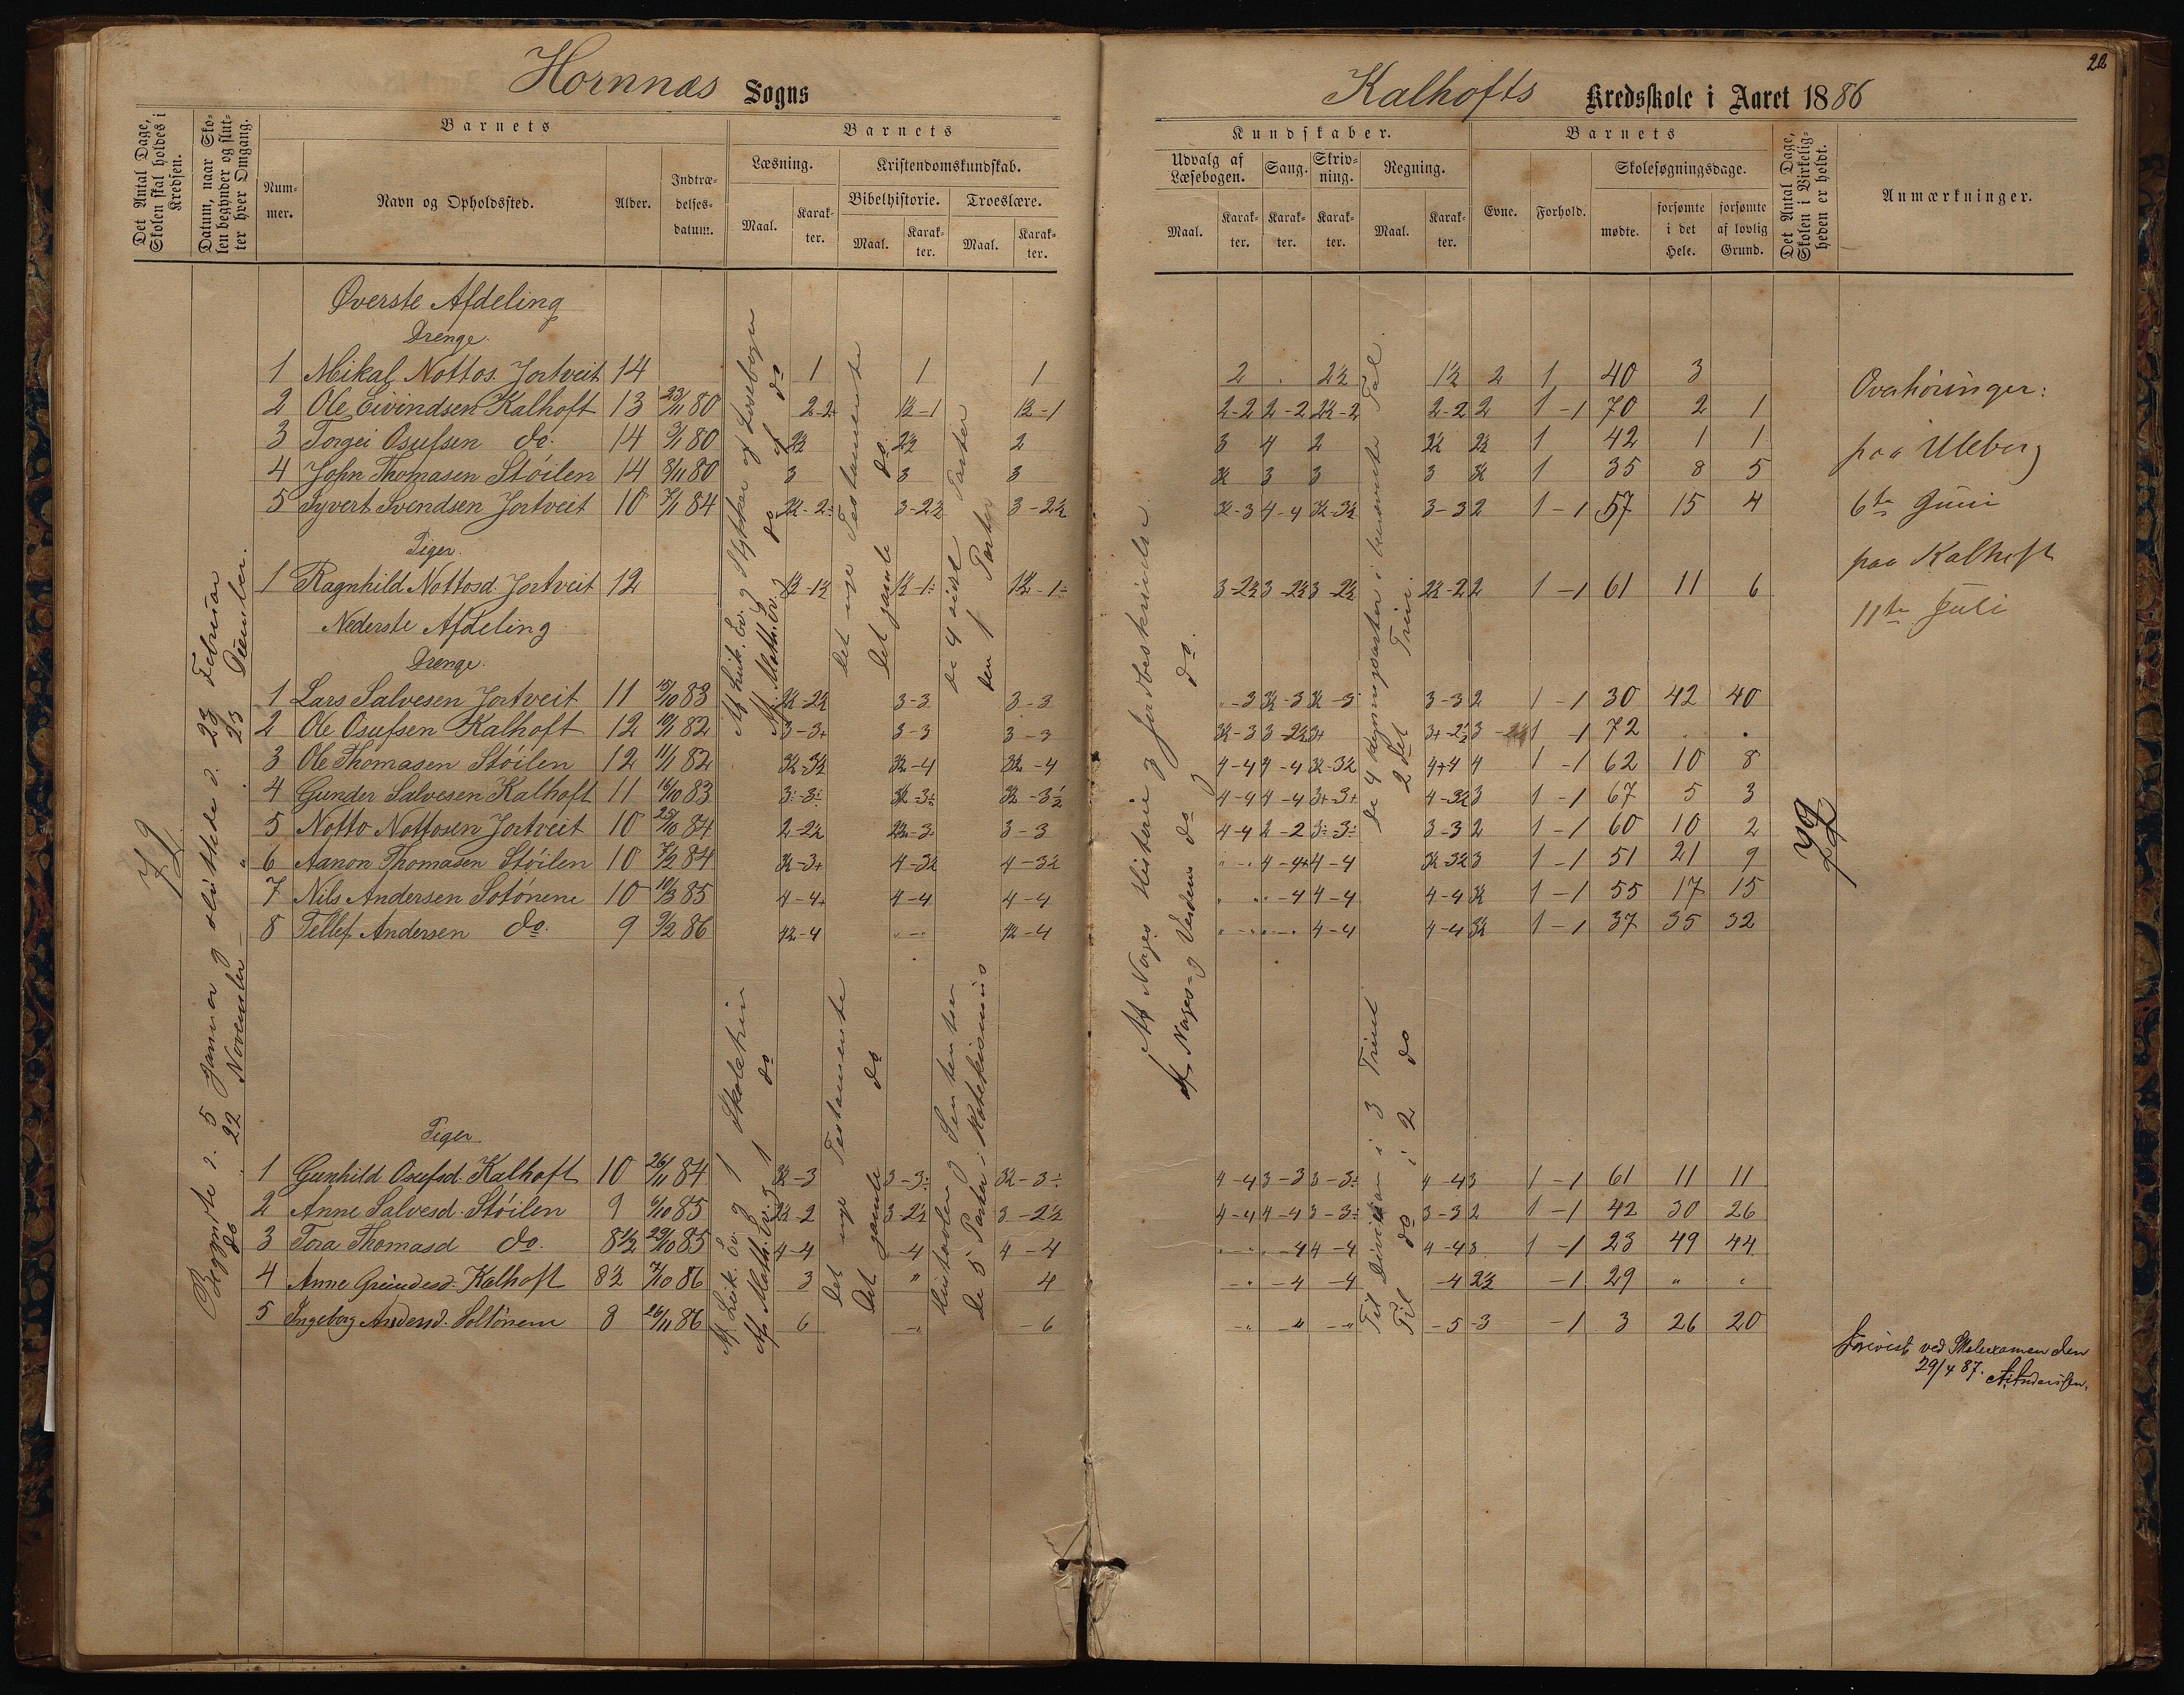 Hornnæs Sogns
Kalhofts Kredsskole i Aaret 1886
22
Det Antal Dage, Skolen skal holdes i Kredsen.
Datum, naar Skolen begynder og slutter hver Omgang.
Barnets
Nummer.
Navn og Opholdssted.
Alder.
Indtrædelsesdatum.
Barnets
Læsning.
Maal.
Karakter.
Kristendomskundskab.
Bibelhistorie.
Maal.
Karakter.
Troeslære.
Maal.
Karakter.
Kundskaber.
Udvalg af Læsebogen.
Maal.
Karakter.
Sang.
Karakter.
Skrivning.
Karakter.
Regning.
Maal.
Karakter.
Barnets
Evne.
Forhold.
Skolesøgningsdage.
mødte.
forsømte i det Hele.
forsømte af lovlig Grund.
Det Antal Dage, Skolen i Virkeligheden er holdt.
Anmærkninger.
Øverste Afdeling
Drenge.
1 Mikal Nottos. Jortveit 14 1 1 1 2 . 2½ 1½ 2 1 40 3
2 Ole Eivindsen Kalhoft 13 23/11 80 2-2 1½-1 1½-1 2-2 2-2 2½-2 2-2 2 1-1 70 2 1
3 Torgei Osufsen do. 14 3/1 80 2½ 2½ 2 3 4 2 2½ 2½ 1 42 1 1
4 John Thomasen Støilen 14 8/11 80 3 3 3 3½ 3 3 3 3½ 1 35 8 5
5 Syvert Svendsen Jortveit 10 7/1 84 3-2½ 3-2½ 3½-3 4-4 3½-3½ 3-3 2 1-1 57 15 4
Piger.
1 Ragnhild Nottosd. Jortveit 12 1½-1½ 1½-1÷ 1½-1÷ 3-2½ 3-2½ 3-2½ 2½-2 2 1-1 61 11 6
Nederste Afdeling
Drenge.
1 Lars Salvesen Jortveit 11 15/10 83 3½-2½ 3-3 3-3 "-3 3½-3 3½-3 3-3 2 1-1 30 42 40
2 Ole Osufsen Kalhoft 12 10/1 82 3-3+ 3-3 3-3 3½-3 3-2½ 3+ 3+-2½ 3 1-1 72 . .
3 Ole Thomasen Støilen 12 11/1 82 3½-3½ 3½-4 3½-4 4-4 4-4 3½-3½ 4+4 4 1-1 62 10 8
4 Gunder Salvesen Kalhoft 11 16/10 83 3÷-3÷ 3½-3½ 3½-3½ 4-4 4-4 3+-3+ 4-3½ 3 1-1 67 5 3
5 Notto Nottosen Jortveit 10 25/10 84 2-2½ 2½-3 3-3 4-4 2-2 3÷-3÷ 3-3 2 1-1 60 10 2
6 Aanon Thomasen Støilen 10 7/2 84 3½-3+ 4-3½ 4-3½ "-. 4-4+ 4-4 3½-3½ 3 1-1 51 21 9
7 Nils Andersen Sotónene 10 10/3 85 4-4+ 4-4 4-4 . "-4 4-4 4-4 3½ 1-1 55 17 15
8 Tellef Andersen do. 9 9/2 86 4½-4 "-" 4½-4 "-" "-" 4-4 4-4 3½ 1-1 37 35 32
Piger
1 Gunhild Osufsd. Kalhoft 10 26/11 84 3½-3 3-3÷ 3½-3÷ 4-4 3-3 3-3÷ 4-4 3 1-1 61 11 11
2 Anne Salvesd. Støilen 9 6/10 85 2½-2 3-2½ 3-2½ 4-4 4-4 3-3÷ 3-3 2 1-1 42 30 26
3 Tora Thomasd do. 8½ 29/10 85 4-4 -4 4-4 "-" "-4 4-4 4-4 3 1-1 23 49 44
4 Anne Gundesd. Kalhoft 8½ 7/10 86 3 " 4 -" -4 -4 -4 2½ -1 29 " "
5 Ingeborg Andersd. Soltónene 8 26/11 86 6 -" -6 -" -" -" -5 -3 -1 3 26 20
72
Begyndte d. 5 Januar og sluttede d. 23 Februar
do " 22 November " 23 December.
Af Luk. Ev. og Stykker af Læsebogen
Af Math. Ev. og do af do
Det nye Testamente
Det gamle do.
De 4 sidste Parter
den 1 Part
Af Norges Historie og Jordbeskrivelse.
Af Norges og Verdens do og do.
De 4 Regningsarter i benævnte Tal.
2det Trin.
Af Luk. Ev. og 1 Skoletrin
Af Math. Ev. og 1 do
Det nye Testamente
Det gamle do
Hustavlen og Sententser
De 5 Parter i Katekismus
Til Division i 3 Trin
Til do i 2 do
72
Overhøringer:
paa Uleberg
6te Juni
paa Kalhoft
11te Juli
Forevist ved Skoleexamen den
29/4 87. A. Anderssen.